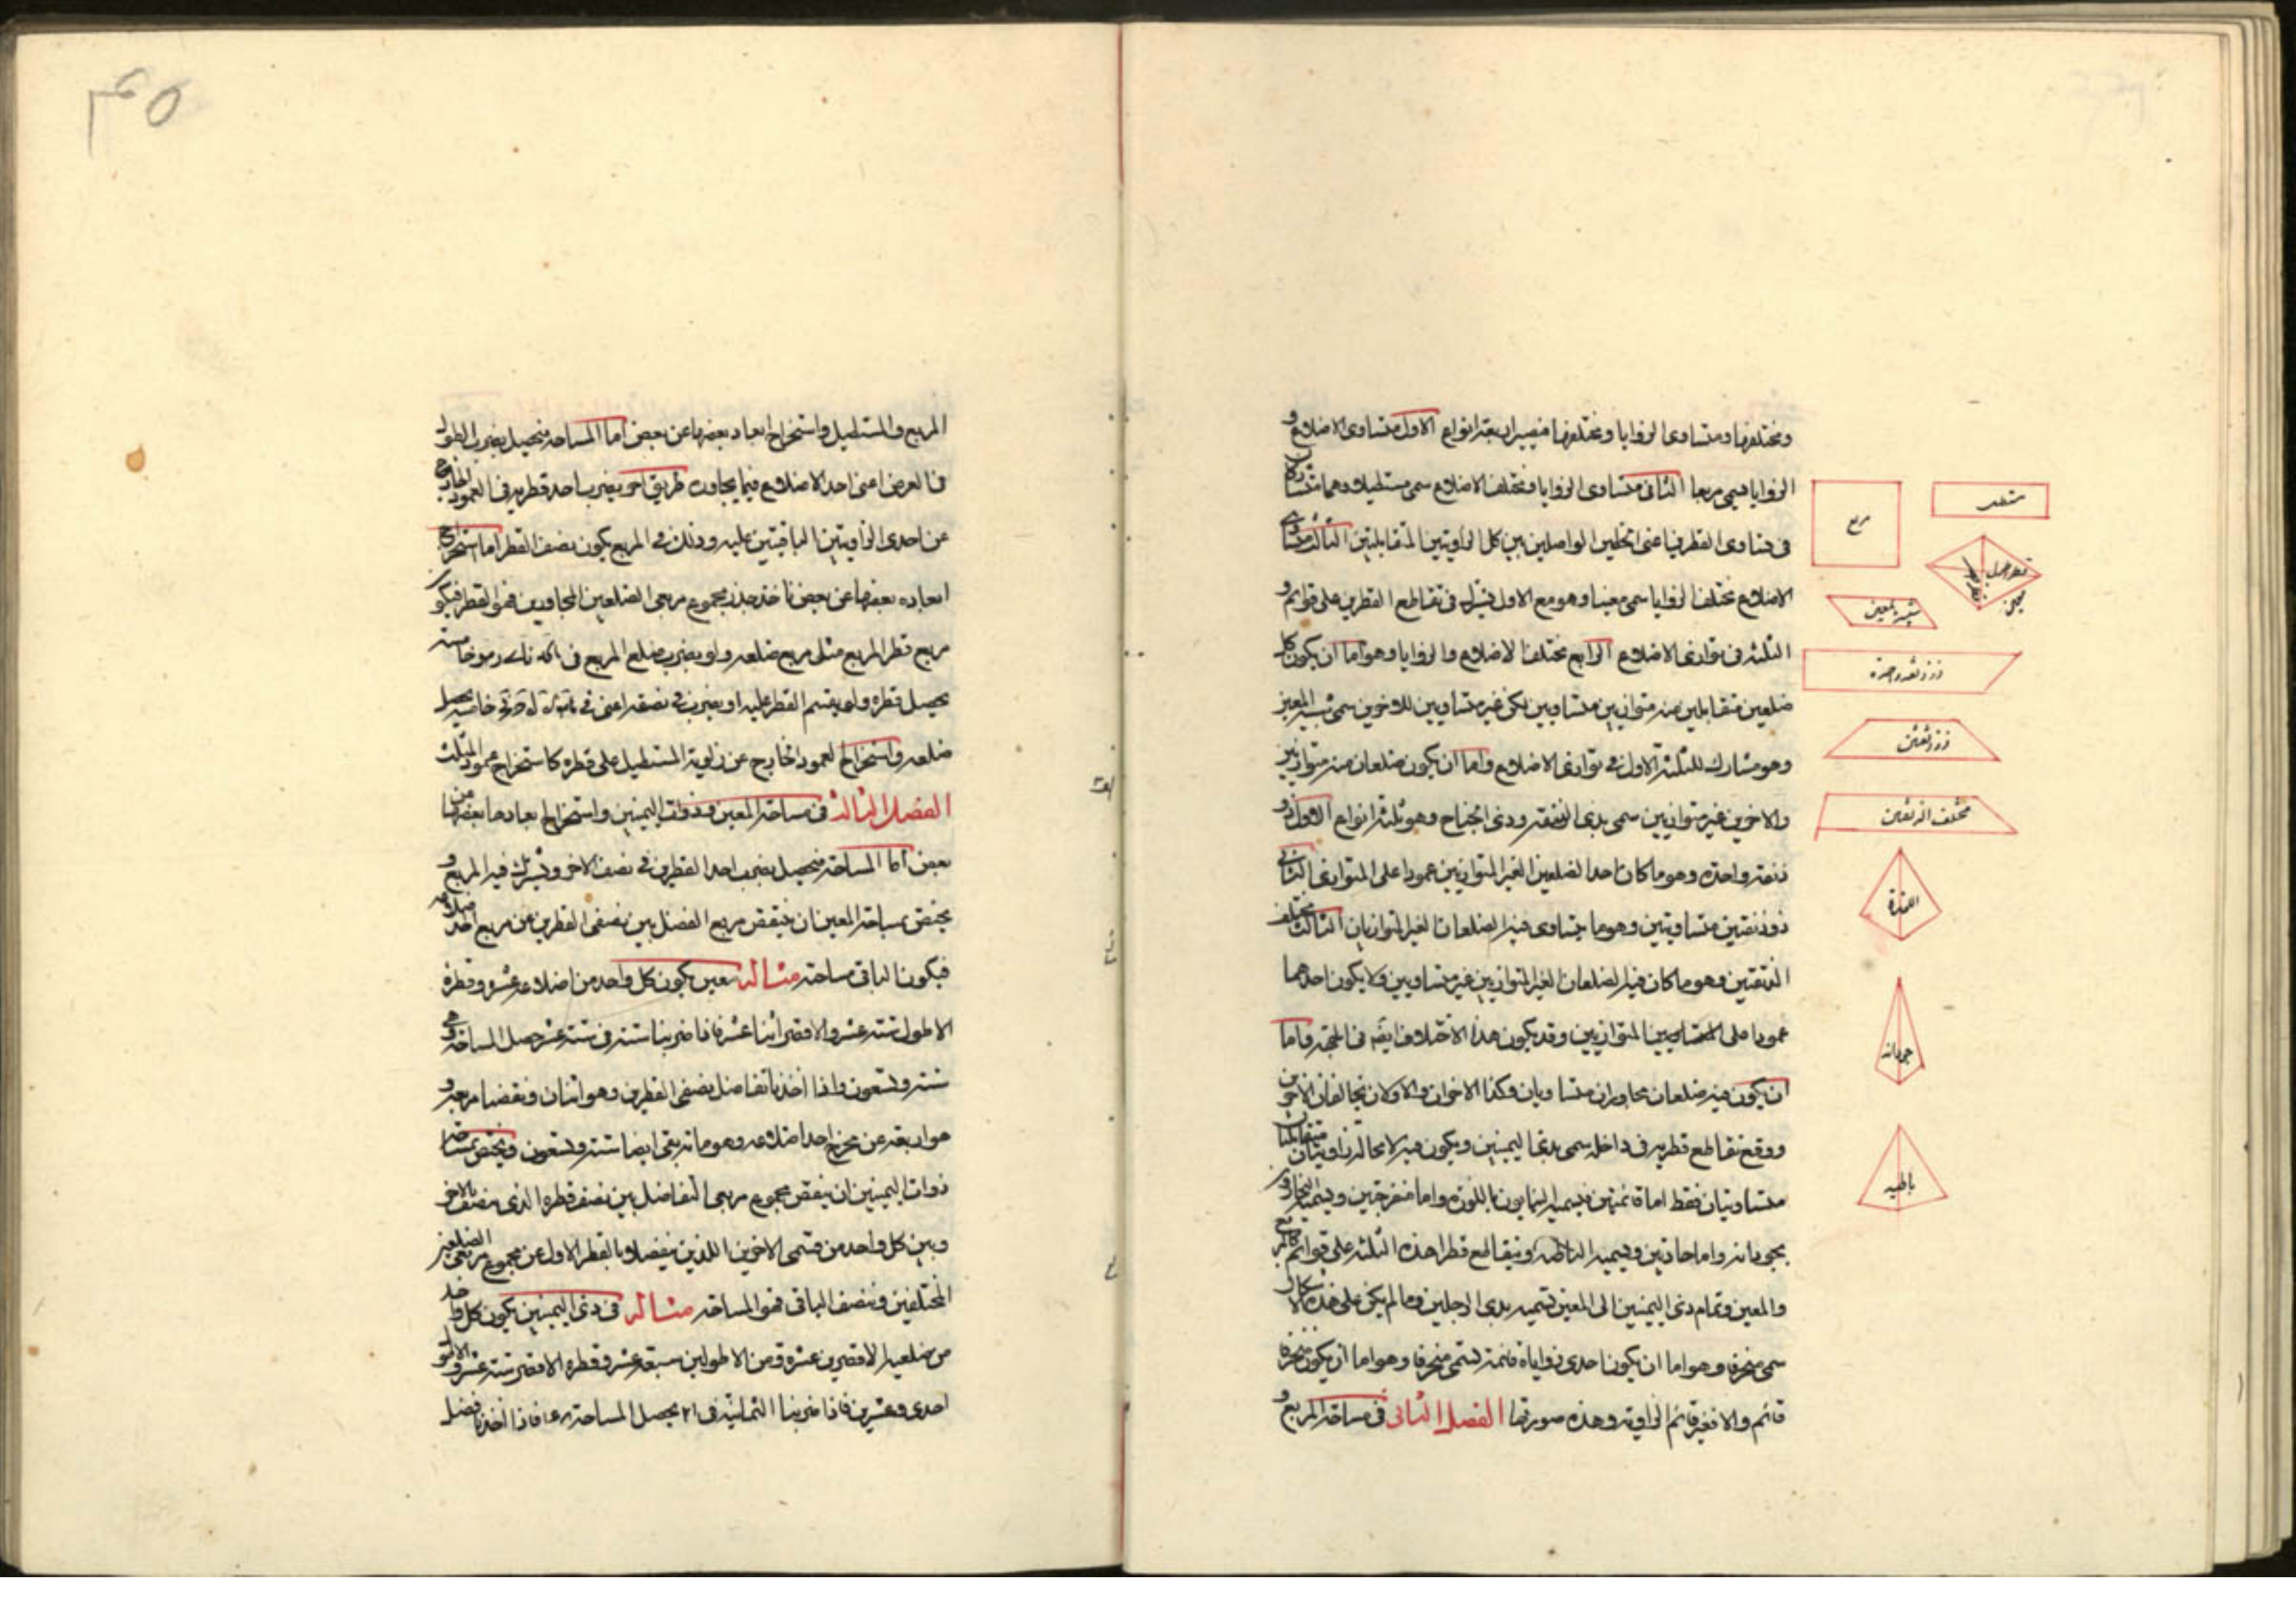 ومختلفها ومتساوى الزوايا ومختلفها فيصير اربعة انواع الاول متساوى الاضلاع و
الزوايا ويسمى مربعا الثانى متساوى الزوايا ومختلف الاضلاع سمى مستطيلا وهما متشاركان
فى تساوى القطرين اعنى الخطين الواصلين بين كل زاويتين المتقابلتين الثالث متساوى
الاضلاع مختلف الزوايا سمى معينا وهو مع الاول يشترك فى تقاطع القطرين على قوائم و
الثلثة فى توازى الاضلاع الرابع مختلف الاضلاع والزوايا وهو اما ان يكون كل
ضلعين متقابلين منه متوازيين متساويين لكن غير متساويين للاخرين سمى شبيه المعين
وهو مشارك للثلثة الاول فى توازى الاضلاع واما ان يكون ضلعان منه متوازيين
والاخرين غير متوازيين سمى بذى الزنقة وذى الجناح وهو ثلثة انواع الاول ذو
زنقة واحدة وهو ما كان احد الضلعين الغير المتوازيين عمودا على المتوازى الثانى
ذو زنقتين متساويتين وهو ما يتساوى فيه الضلعان الغير المتوازيان الثالث مختلف
الزنقتين وهو ما كان فيه الضلعان الغير المتوازيين غير متساويين ولا يكون احدهما
عمودا على المتوازيين وقد يكون هذا الاختلاف ايضا فى الجهة واما
ان يكون فيه ضلعان مجاوران متساويان وكذا الاخران والاولان يخالفان الاخرين
ووقع تقاطع قطريه فى داخله سمى بذى اليمينين ويكون فيه لا محالة زاويتان متقابلتان
متساويتان فقط اما قائمتين يسميه البنايون باللوزة واما منفرجتين ويسميه النجارون
بجودانه واما حادتين ويسميه الباطية ويتقاطع قطرا هذه الثلثة على قوائم كالمربع
والمعين وتمام ذى اليمينين الى المعين تسميه بذى الرجلين وما لم يكن على هذه الاشكال
سمى منحرفا وهو اما ان يكون احدى زواياه قائمة يسمى منحرفا وهو اما ان يكون منحرفا
قائم والا فغير قائم الزاوية وهذه صورتها الفصل الثانى فى مساحة المربع و
مستطيل
مربع
قطر اطول
قطر اقصر
معين
شبيه بمعين
ذو زنقة واحدة
ذو زنقتين
مختلف الزنقتين
اللوزة
جودانه
باطيه
٣٤٥
المربع والمستطيل واستخراج ابعاد بعضها عن بعض اما المساحة فيحصل بضرب الطول
فى العرض اعنى احد الاضلاع فيما يجاوره طريق اخر يضرب احد قطريه فى العمود الخارج
عن احدى الزاويتين الباقيتين عليه وذلك فى المربع يكون نصف القطر اما استخراج
ابعاده بعضها عن بعض ناخذ جذر مجموع مربعى الضلعين المجاورين فهو القطر فيكون
مربع قطر المربع مثلى مربع ضلعه ولو يضرب ضلع المربع فى
يحصل قطره ولو يقسم القطر عليه او يضرب فى نصفه اعنى فى خامسة يحصل
ضلعه واستخراج العمود الخارج عن زاوية المستطيل على قطره كاستخراج عمود المثلث
الفصل الثالث فى مساحة المعين وذوات اليمينين واستخراج ابعادها بعضها من
بعض اما المساحة فيحصل بضرب احد القطرين فى نصف الاخر ويشترك فيه المربع و
يختص بمساحة المعين ان ينقص مربع الفضل بين نصفى القطرين من مربع احد اضلاعه
فيكون الباقى مساحته مثاله معين يكون كل واحد من اضلاعه عشرة وقطره
الاطول ستة عشر والاقصر اثنا عشر فاذا ضربنا ستة فى ستة عشر حصل المساحة وهى
ستة وتسعون واذا اخذنا تفاضل نصفى القطرين وهو اثنان ونقصنا مربعه و
هو اربعة عن مربع احد اضلاعه وهو مائة بقى ايضا ستة وتسعون ويختص بمساحة
ذوات اليمينين ان ينقص مجموع مربعى التفاضل بين نصف قطره الذى ينصف بالاخر
وبين كل واحد من قسمى الاخرين اللذين ينفصلا بالقطر الاول عن مجموع مربعى الضلعين
المختلفين وننصف الباقى فهو المساحة مثاله فى ذى اليمينين يكون كل واحد
من ضلعيه الاقصرين عشرة ومن الاطولين سبعة عشر وقطره الاقصر ستة عشر والاطول
احدى وعشرين فاذا ضربنا الثمانية فى ٢١ يحصل المساحة ١٦٨ فاذا اخذنا فضل